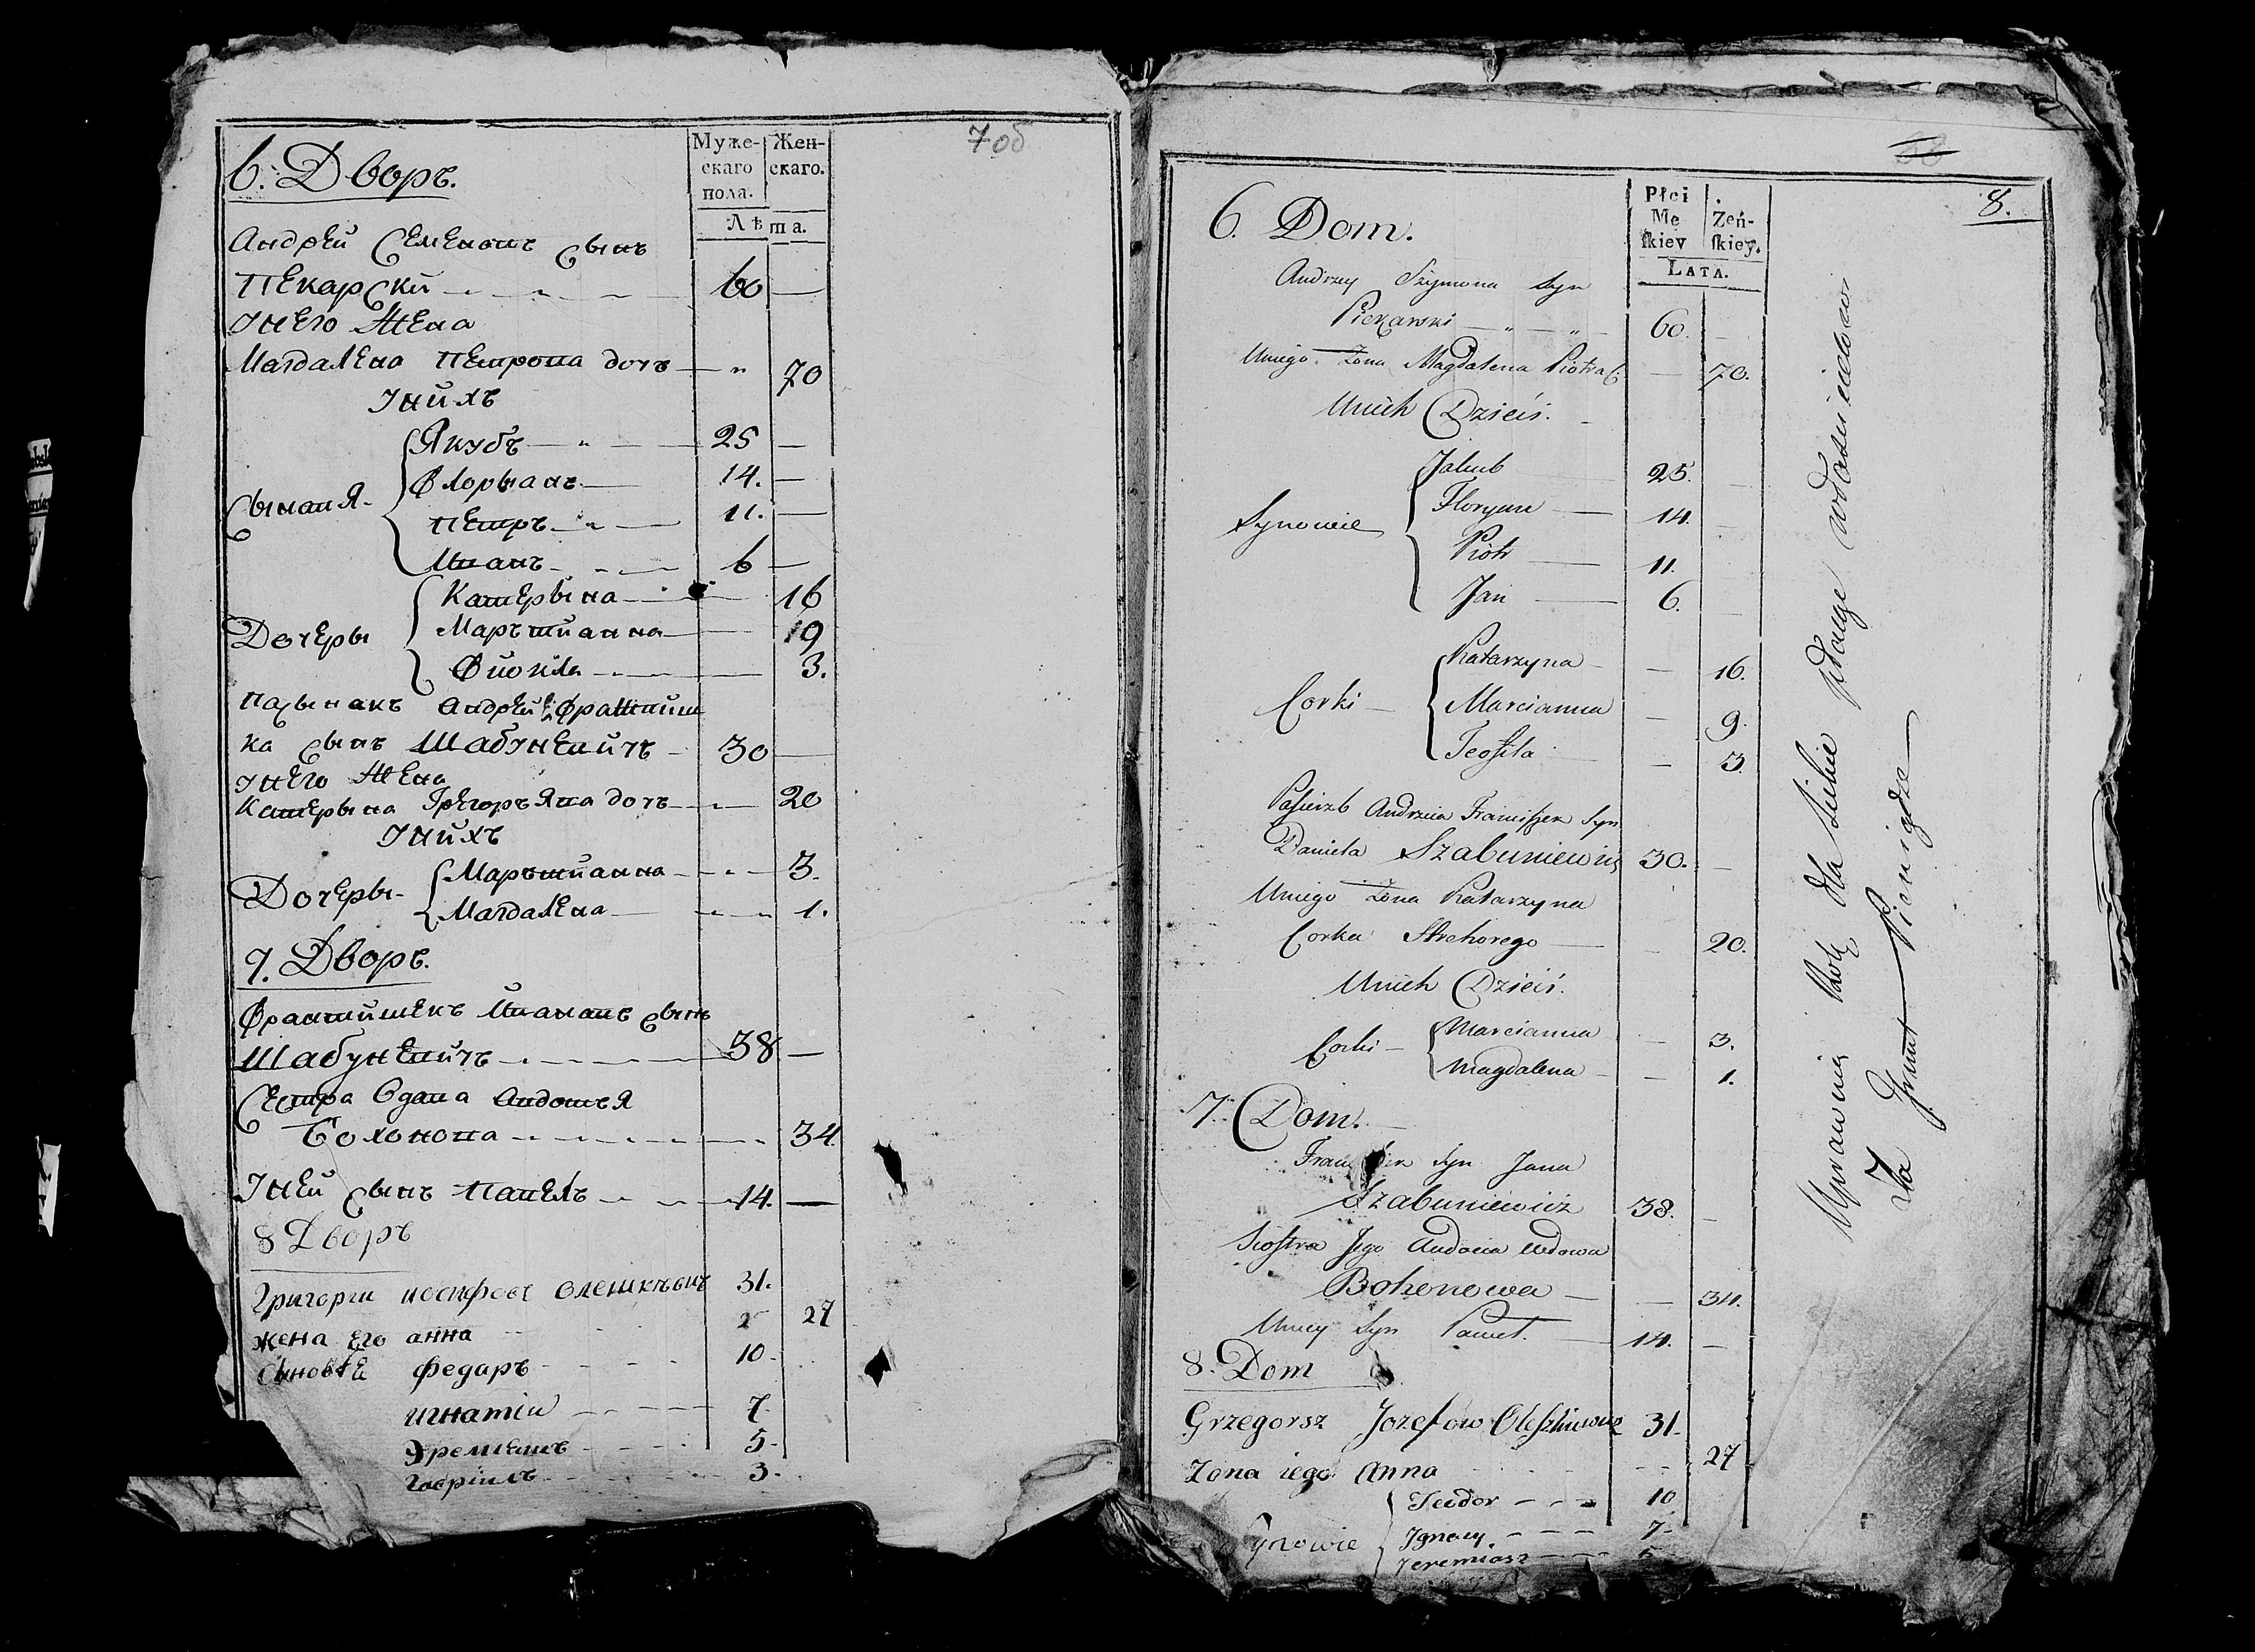 7 об
Муже-
скаго
пола.
Жен-
скаго.
Лѣта.
6. Дворъ.
Андрей Семеновъ сынъ
Пекарски 60 —
Унего жена
Магдалена Петрова дочъ — 70
Унихъ
Сыновя
Якубъ — 25 —
Флорыанъ — 14. —
Петръ — 11. —
Иванъ — 6 —
Дочеры
Катерына — 16
Марътианна — 19
Фиокла — 3.
Пасынакъ Андрей
ка сынъ Шабуневичъ — 30 —
Унего жена
Катерына Грегоръява дочъ — 20
Унихъ
Дочеры
Марътианна — 3.
Магдалена — 1.
7. Дворъ.
Франтишекъ Ивановъ сынъ
Шабуневичъ — 38 —
Сестра Вдова Авдотья
Бохонова — 34.
Уней сынъ Павелъ — 14. —
8 Дворъ
Григорги иосифовъ олешкѣвичъ 31.
жена Его анна 27
Сыновѣ федаръ 10
игнатiи 7
5
гаврiилъ 3.
8.
Płci
Mę
ſkiey
Żeń-
ſkiey.
LATA.
6. Dom.
Andrzey Szymona Syn
Piekarski — 60. —
Uniego Żona Magdalena Piotra C. — 70.
Unich Dzieci.
Synowie
Jakub 25. —
Floryan — 14. —
Piotr — 11. —
Jan — 6. —
Corki
Katarzyna — 16.
Marcianna — 9.
Teofila — 3.
Pasierzb Andrzeia Franciszek Syn
Daniela Szabuniewicz 30. —
Uniego Żona Katarzyna
Corka Strehorego — 20.
Unich Dzieci.
Corki
Marcianna — 3.
Magdalena — 1.
7. Dom.
Syn Jana
Szabuniewicz 38. —
Siostra Jego Audocia Wdowa
Bohonowa — 34.
Uniey Syn Paweł. — 14. —
8. Dom
Grzegorsz Jozefow Oleszkiewicz 31.
Zona iego Anna 27
Synowie
Teodor — 10
Jgnacy — 7
Jeremiasz — 5
Uprawia Rolę dla siebie płacąc właścicielow
Za Grunt Pieniądze